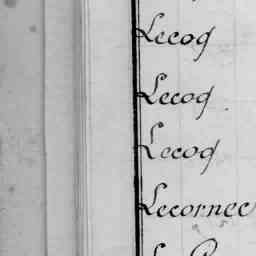 Lecoq
Lecoq
Lecoq
Lecornee